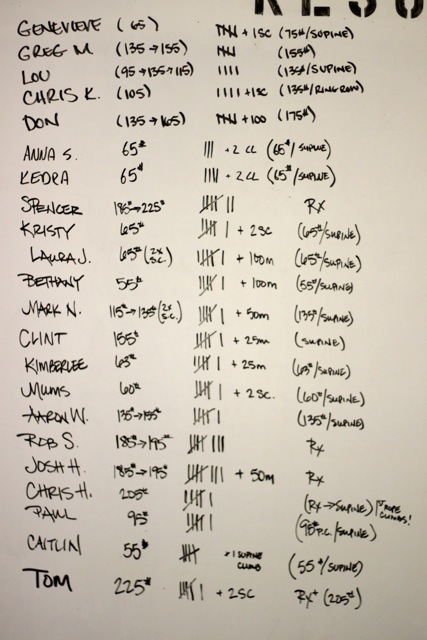 RESU
GENEVIEVE (65) 𝍸 + 1SC (75#/SUPINE)
GREG M. (135→155) 𝍸 (155#)
LOU (95→135→115) |||| (135#/SUPINE)
CHRIS K. (105) |||| +1SC (135#/RING ROW)
DON (135→165) 𝍸 +100 (175#)
ANNA S. 65# ||| +2 CL (65#/SUPINE)
KEDRA 65# |||| +2 CL (65#/SUPINE)
SPENCER 185#→225# 𝍸 || Rx
KRISTY 65# 𝍸 | + 2SC (65#/SUPINE)
LAURA J. 65# (2x S.C.) 𝍸 | + 100m (65#/SUPINE)
BETHANY 55# 𝍸 | + 100m (55#/SUPINE)
MARK N. 115#→135# (2x S.C.) 𝍸 | + 50m (135#/SUPINE)
CLINT 155# 𝍸 | + 25m (SUPINE)
KIMBERLEE 63# 𝍸 | + 25m (63#/SUPINE)
MUMS 60# 𝍸 | + 2SC. (60#/SUPINE)
AARON W. 135→155# 𝍸 | (135#/SUPINE)
ROB S. 185→195# 𝍸 ||| Rx
JOSH H. 185#→195# 𝍸 ||| + 50m Rx
CHRIS H. 205# 𝍸 | (Rx→SUPINE) ROPE CLIMBS!
PAUL 95# 𝍸 | (95# P.C./SUPINE)
CAITLIN 55# 𝍸 +1 SUPINE CLIMB (55#/SUPINE)
TOM 225# 𝍸 | + 2SC Rx+ (205#)